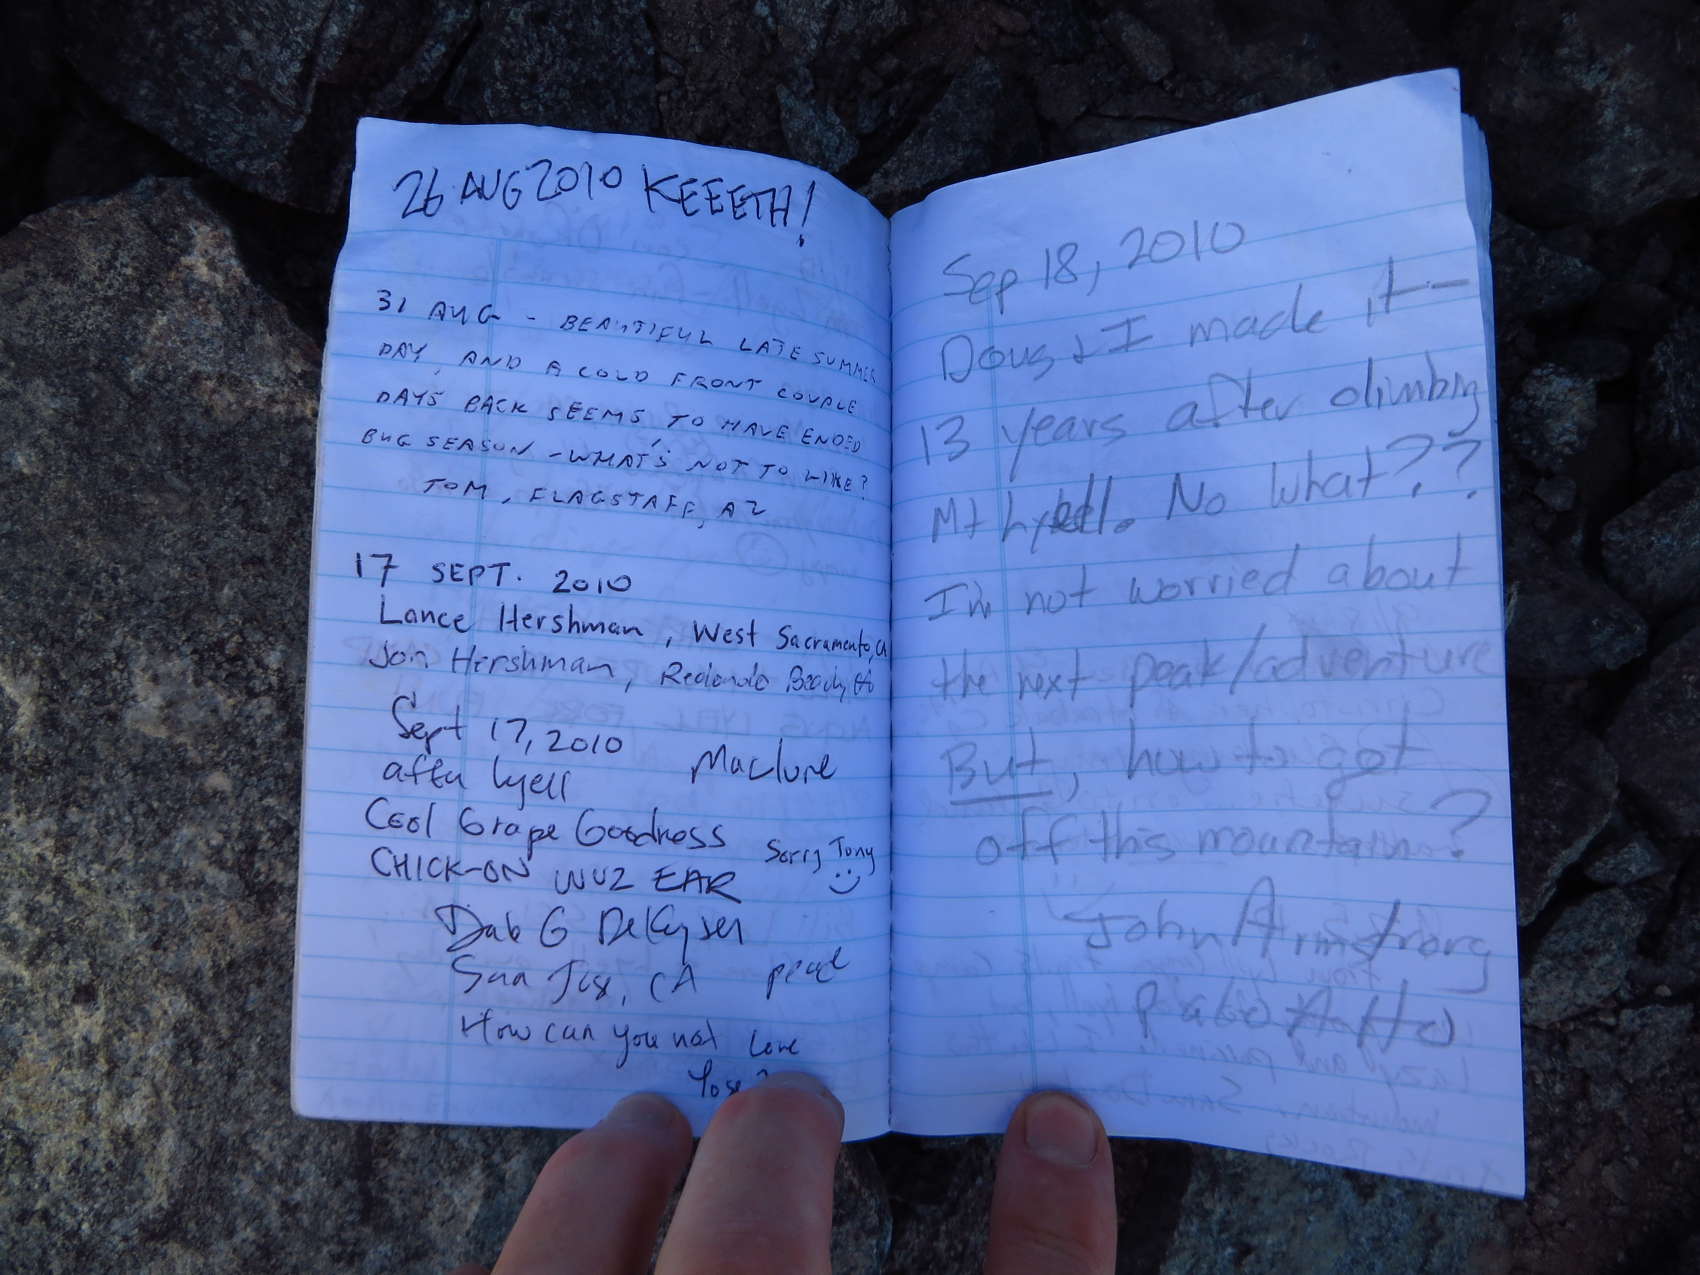 26 AUG 2010 KEEETH!
31 AUG - BEAUTIFUL LATE SUMMER
DAY, AND A COLD FRONT COUPLE
DAYS BACK SEEMS TO HAVE ENDED
BUG SEASON - WHAT'S NOT TO LIKE?
TOM, FLAGSTAFF, AZ
17 SEPT. 2010
Lance Hershman, West Sacramento, CA
Jon Hershman, Redondo Beach, CA
Sept 17, 2010
after Lyell Maclure
Cool Grape Goodness
Sorry Tony
CHICK-ON WUZ EAR
G DeKeyser
San Jose, CA
How can you not love
Yose?
Sep 18, 2010
Doug & I made it -
13 years after climbing
Mt Lyell. No what??
I'm not worried about
the next peak/adventure
But, how to get
off this mountain?
John Armstrong
Palo Alto